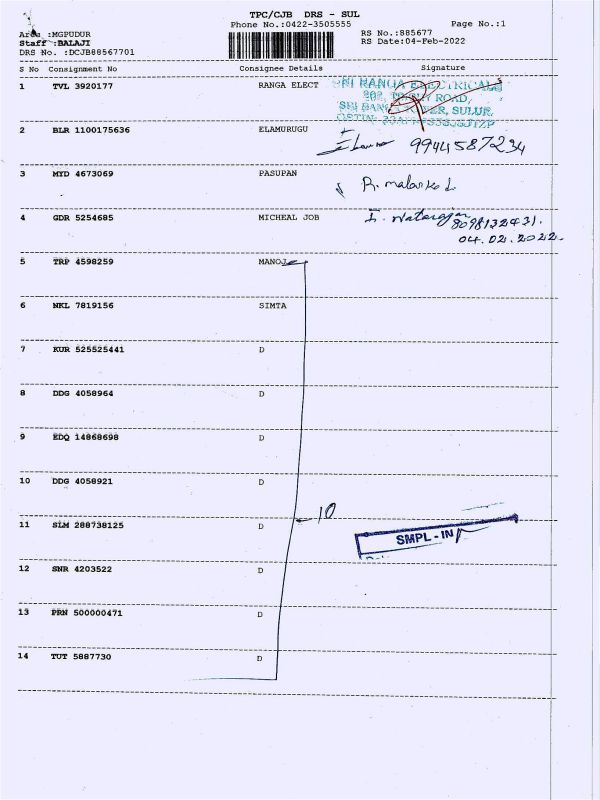 TPC/CJB DRS - SUL
Phone No.:0422-3505555
Page No.:1
Area :MGPUDUR
RS No.:885677
Staff :BALAJI
RS Date:04-Feb-2022
DRS No. :DCJB88567701
S No Consignment No Consignee Details Signature
1 TVL 3920177 RANGA ELECT
SRI RANGA ELECTRICALS
ROAD,
SULUR,
2 BLR 1100175636 ELAMURUGU
99445 87234
3 MYD 4673069 PASUPAN
4 GDR 5254685 MICHEAL JOB
8098132431.
04.02.2022.
5 TRP 4598259 MANOJ
6 NKL 7819156 SIMTA
7 KUR 525525441 D
8 DDG 4058964 D
9 EDQ 14868698 D
10 DDG 4058921 D
10
11 SLM 288738125 D
SMPL - IN
12 SNR 4203522 D
13 PRN 500000471 D
14 TUT 5887730 D